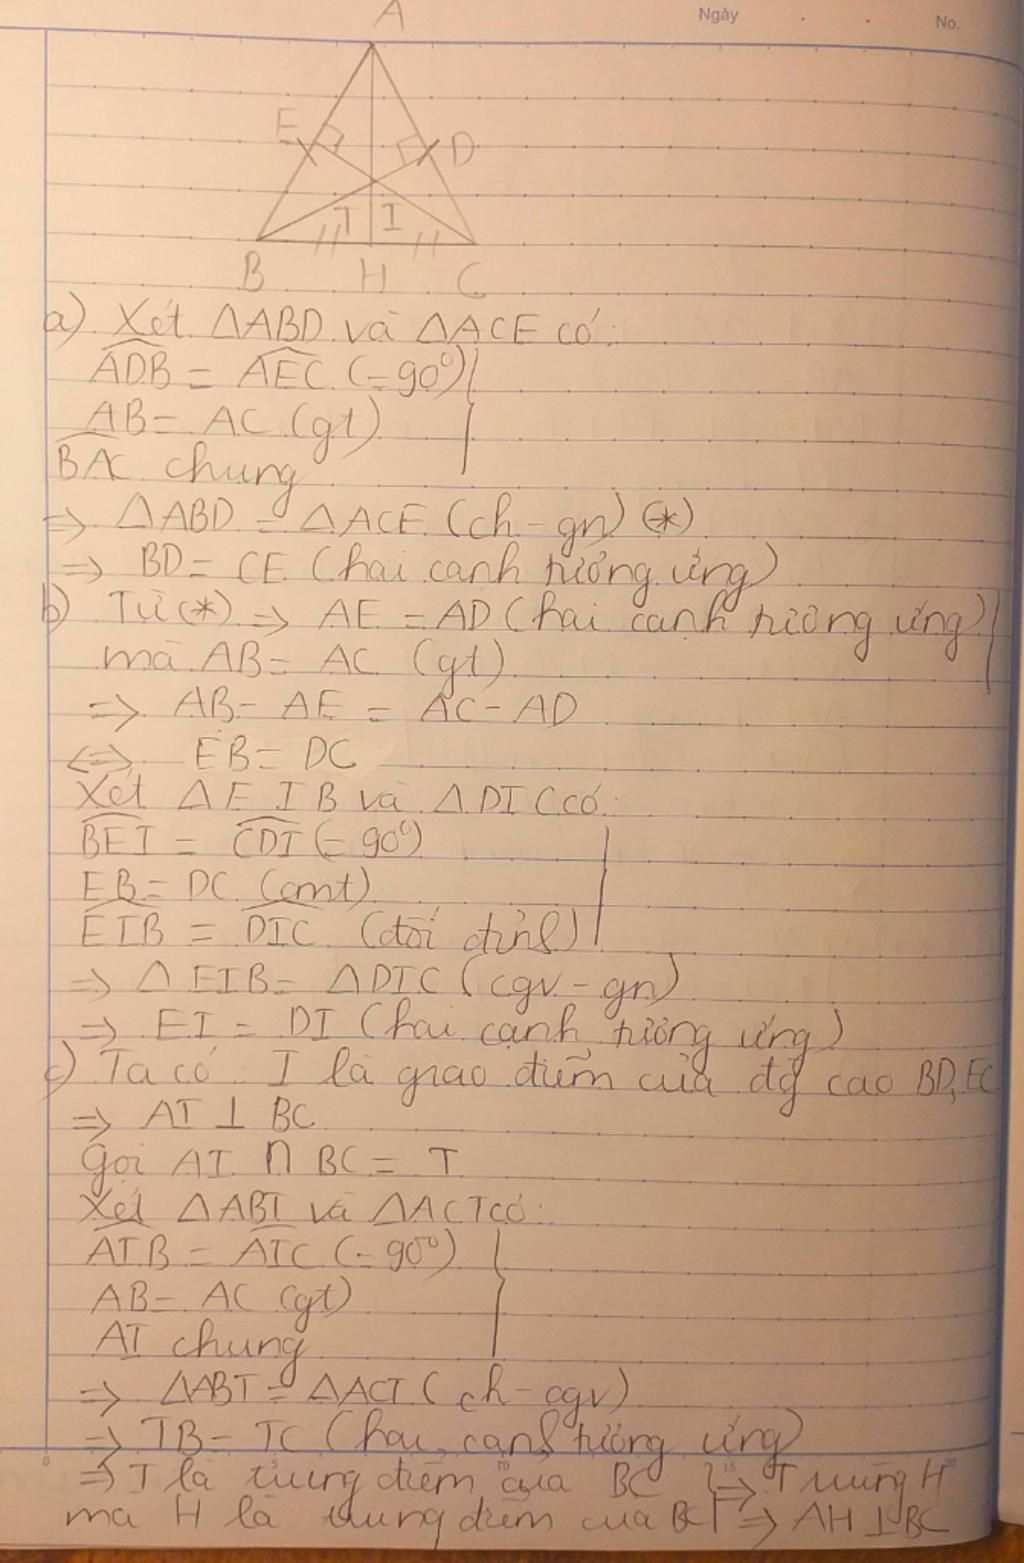 Ngày
No.
A
E
D
T I
B H C
a) Xét ΔABD và ΔACE có:
ADB = AEC (= 90°)
AB = AC (gt)
BAC chung
=> ΔABD = ΔACE (ch - gn) (*)
=> BD = CE (hai cạnh tương ứng)
b) Từ (*) => AE = AD (hai cạnh tương ứng)
mà AB = AC (gt)
=> AB - AE = AC - AD
<=> EB = DC
Xét ΔEIB và ΔDIC có:
BEI = CDI (= 90°)
EB = DC (cmt)
EIB = DIC (đối đỉnh)
=> ΔEIB = ΔDIC (cgv - gn)
=> EI = DI (hai cạnh tương ứng)
c) Ta có I là giao điểm của đg cao BD, EC
=> AI ⊥ BC
Gọi AI ∩ BC = T
Xét ΔABT và ΔACT có:
ATB = ATC (= 90°)
AB = AC (gt)
AT chung
=> ΔABT = ΔACT (ch - cgv)
=> TB = TC (hai cạnh tương ứng)
=> T là trung điểm của BC => T trùng H
mà H là trung điểm của BC => AH ⊥ BC